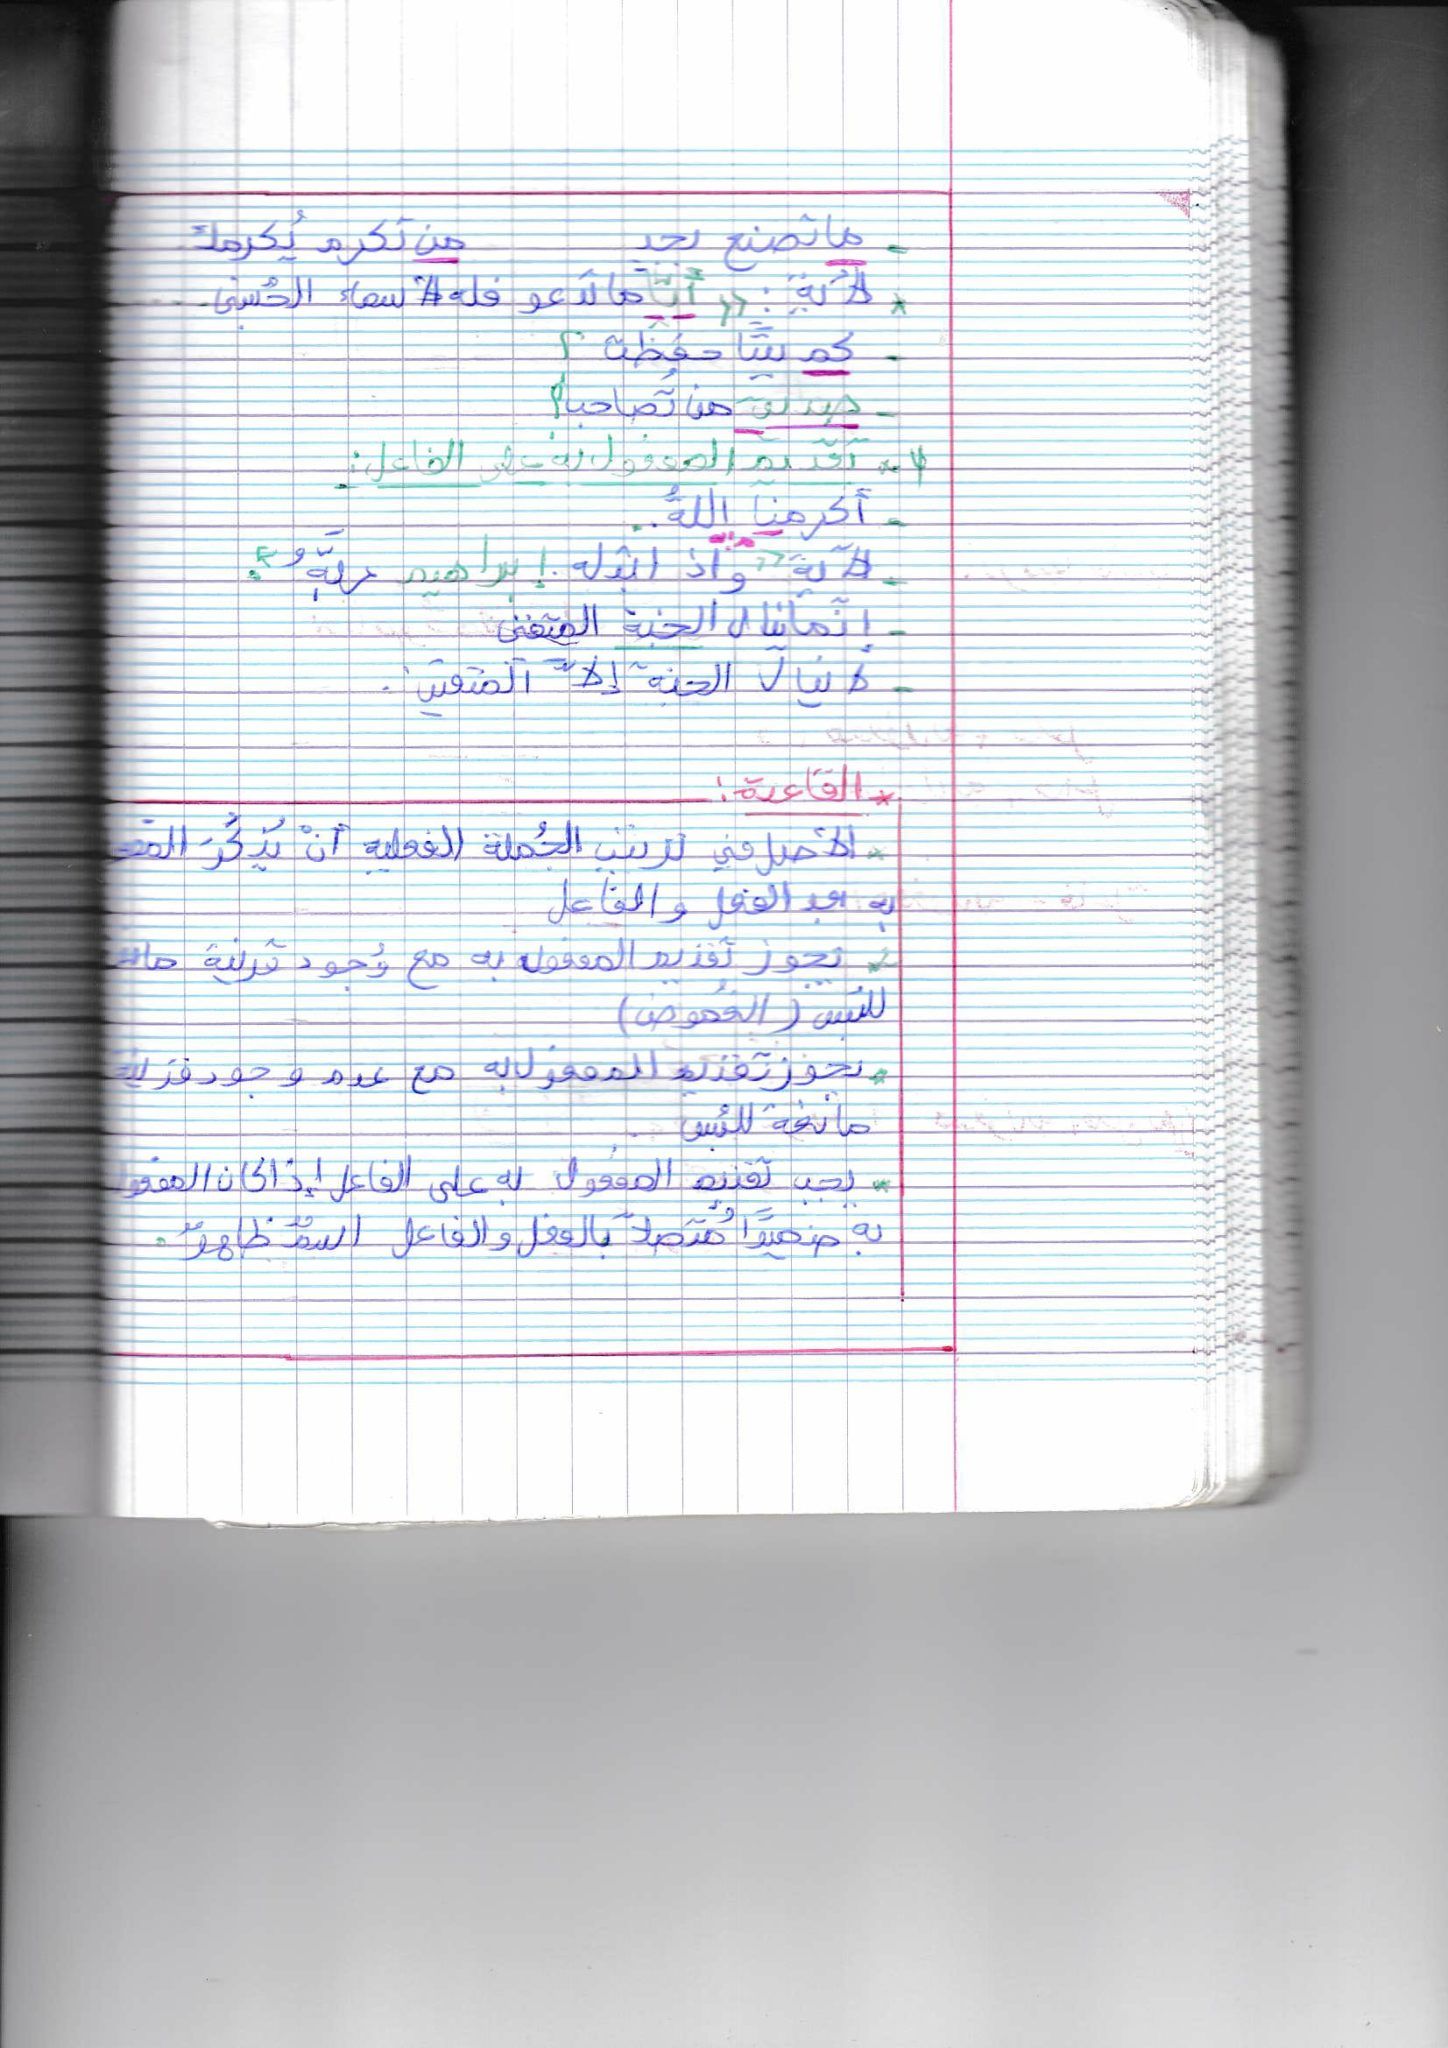 - ما تصنع تجد من تكرم يُكرمك
* الآية : « أيًّا ما تدعو فله الأسماء الحُسنى
- كم بيتًا حفظت ؟
- صديق من تُصاحب؟
4- تقديم المفعول به على الفاعل :
- أكرمنا اللهُ .
- الآية « وإذ ابتلى إبراهيم ربُّهُ » .
- إنّما ينال الجنة المتقي
- لا ينال الجنة إلاّ المتقين .
* القاعدة :
* الأصل في ترتيب الجُملة الفعلية أنْ يُذكَرَ المفع
به بعد الفعل والفاعل
* يجوز تقديم المفعول به مع وُجود قرينة مانعة
للبس (الغُموض)
* يجوز تقديم المفعول به مع عدم وجود قرينة
مانعة للبس
* يجب تقديم المفعول به على الفاعل إذا كان المفعول
به ضميرًا مُتصلاً بالفعل والفاعل اسمٌ ظاهرٌ .